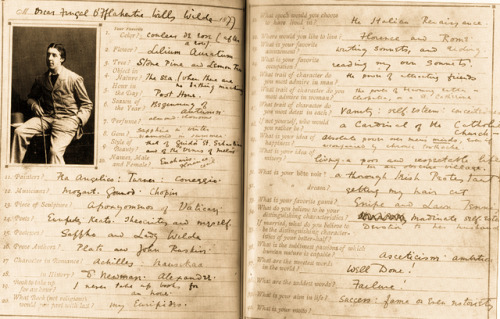 Oscar Fingal O'Flahertie Wills Wilde 1877
Your Favorite
Color?
Flower? Lilium Auratum
Tree? Stone Pine and Lemon Tree
Object in Nature? The Sea (when there are no bathing machines)
Hour in the Day? Post Hour.
Season of the Year? Beginning of Autumn.
Perfume? almond
Gem? Sapphire in winter
Style of Beauty? Guido's St. Sebastian
Name, Male
Female?
11. Painters? Fra Angelico: Turner: Correggio
12. Musicians? Mozart. Gounod. Chopin
13. Piece of Sculpture? Vatican
14. Poets? Euripides, Keats, Theocritus and myself.
15. Poetesses? Sappho and Lady Wilde
16. Prose Authors? Plato and John Ruskin.
17. Character in Romance? Achilles
18. in History? Newman. Alexander.
19. Book to take up for an hour? I never take up books for an hour.
20. What Book (not religious) would you part with last? my Euripides.
What epoch would you choose to have lived in? The Italian Renaissance.
Where would you like to live? Florence and Rome
What is your favorite occupation? writing sonnets, and reading my own sonnets.
What trait of character do you most admire in man? the power of attracting friends
What trait of character do you most admire in woman?
What trait of character do you most detest in each? Vanity: self esteem: conceitedness
If not yourself, who would you rather be? a Cardinal of the Catholic Church
What is your idea of happiness? absolute power over men's minds,
What is your idea of misery? living a poor and respectable life in an obscure village.
What is your bête noire? a thorough Irish Protestant
What is your dream? getting my hair cut
What is your favorite game? Snipe and Lawn Tennis
What do you believe to be your distinguishing characteristics? inordinate self
If married, what do you believe to be the distinguishing characteristics of your better-half? Devotion to her husband
What is the sublimest passion of which human nature is capable? Asceticism: ambition
What are the sweetest words in the world? Well Done!
What are the saddest words? Failure!
What is your aim in life? Success: fame or even notoriety
What is your motto?